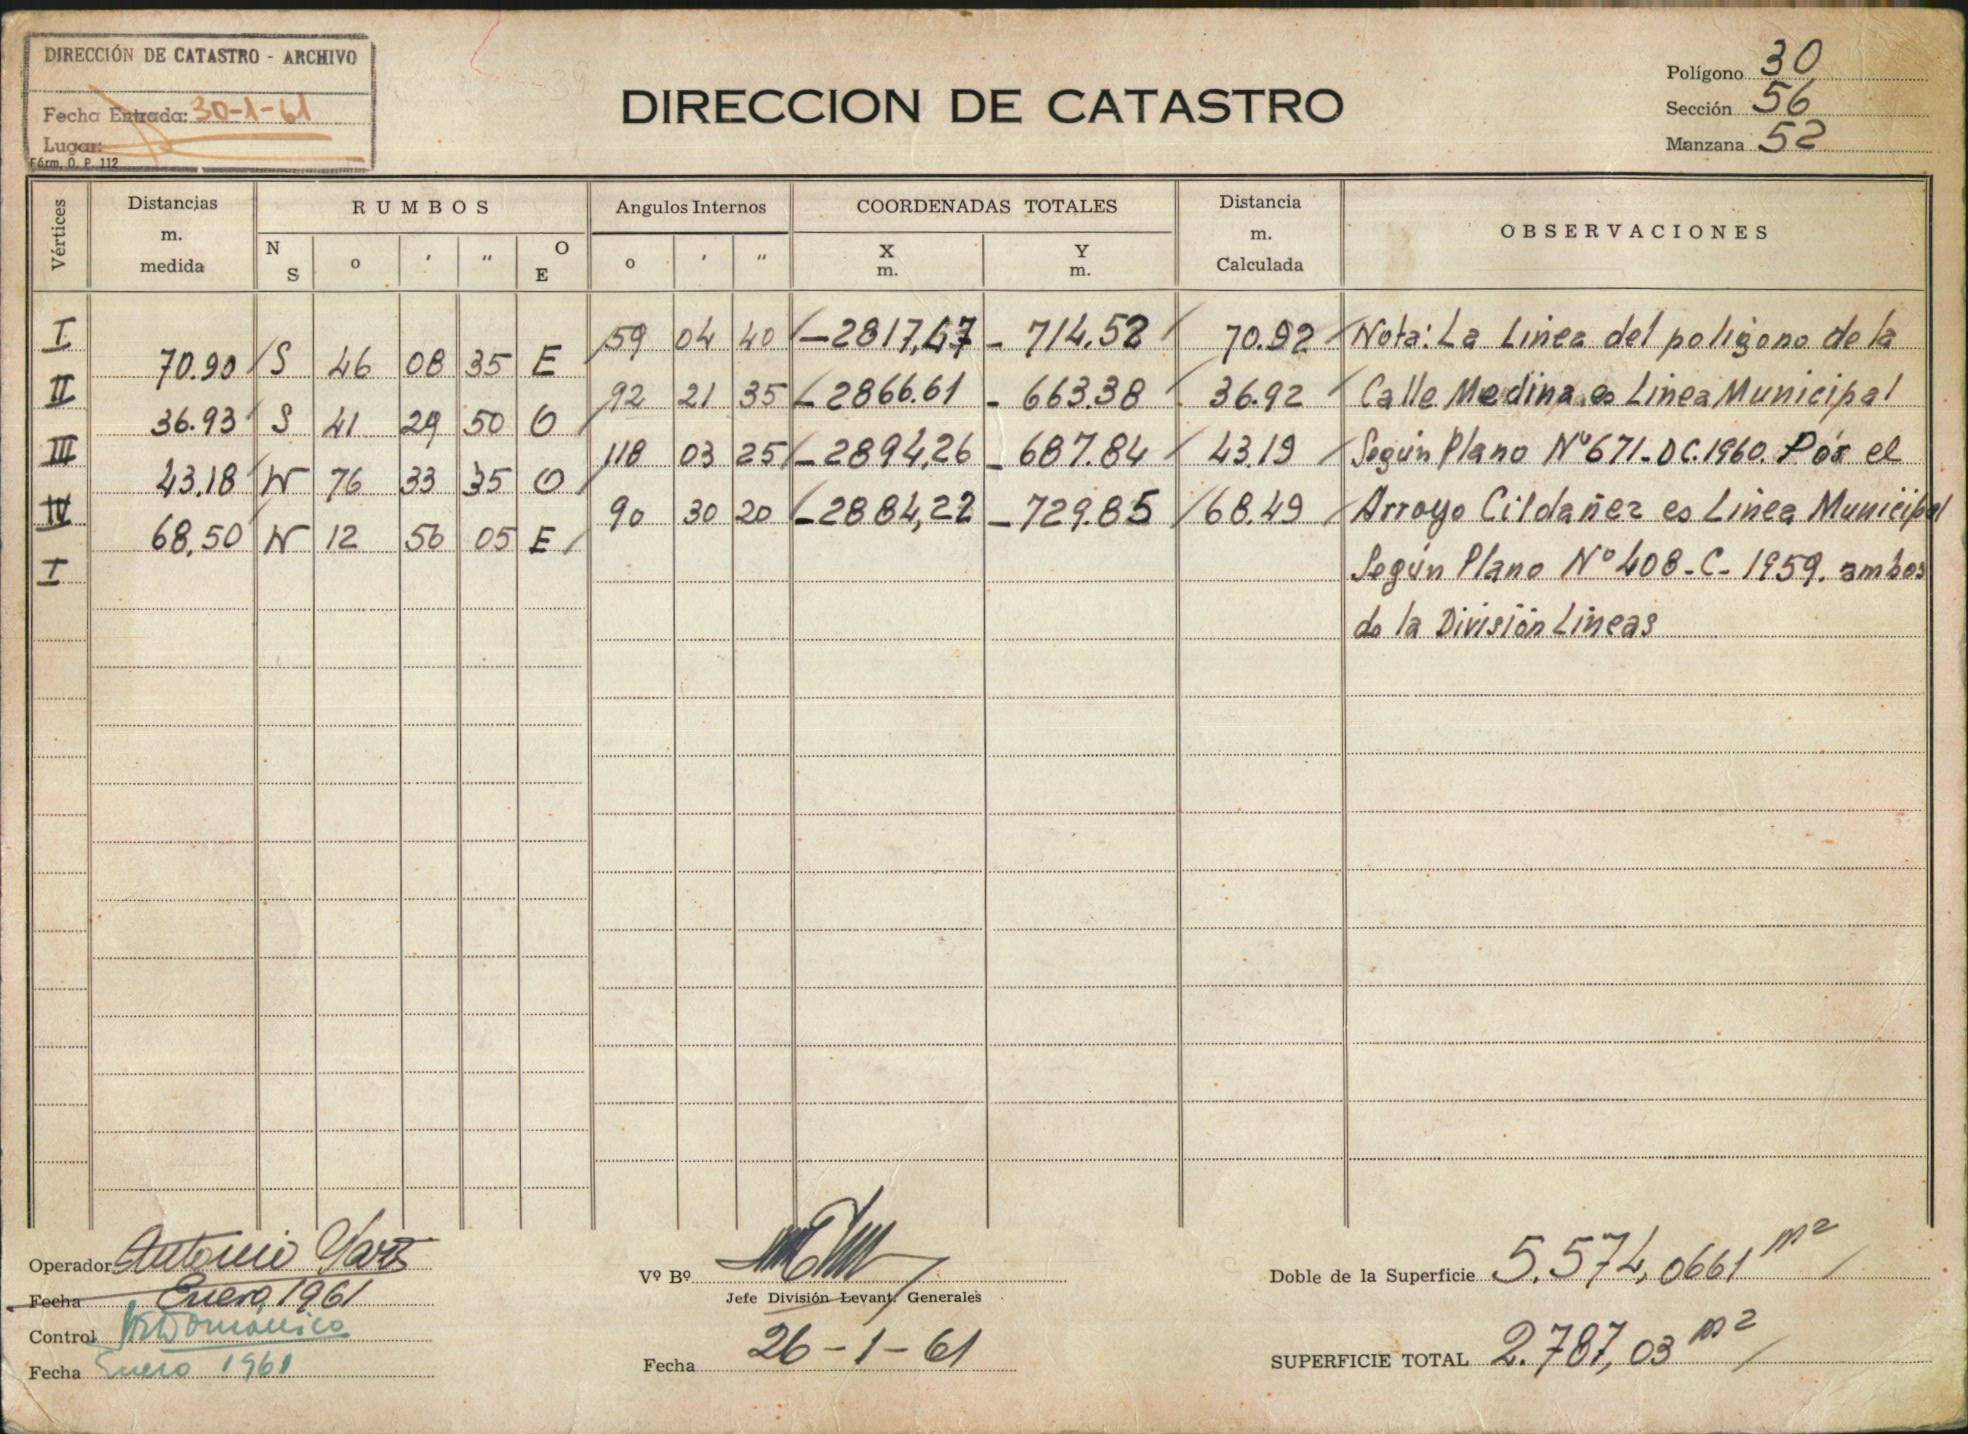 DIRECCIÓN DE CATASTRO - ARCHIVO
Fecha Entrada: 30-1-61
Lugar:
Fórm. O. P. 112
DIRECCION DE CATASTRO
Polígono 30
Sección 56
Manzana 52
Vértices Distancias m. medida RUMBOS Angulos Internos COORDENADAS TOTALES Distancia m. Calculada OBSERVACIONES
N S o ' " O E o ' " X m. Y m.
I 59 04 40 -2817,67 - 714.52 70.92 Nota: La Linea del poligono de la
70.90 S 46 08 35 E
II 92 21 35 -2866.61 - 663.38 36.92 Calle Medina es Linea Municipal
36.93 S 41 29 50 O
III 118 03 25 -2894,26 - 687.84 43.19 Según Plano Nº 671-DC.1960. Por el
43.18 N 76 33 35 O
IV 90 30 20 -2884,22 -729.85 68.49 Arroyo Cildañez es Linea Municipal
68,50 N 12 56 05 E
I Según Plano Nº 408-C-1959. ambos
de la División Lineas
Operador Antonio
Fecha Enero 1961
Control
Fecha Enero 1961
Vº Bº
Jefe División Levant. Generales
Fecha 26-1-61
Doble de la Superficie 5.574,0661 m2
SUPERFICIE TOTAL 2.787,03 m2